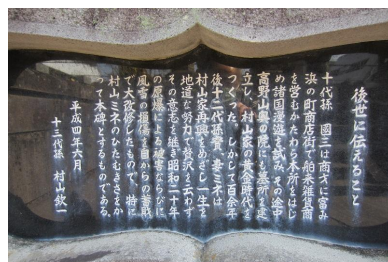 後世に伝えること
十代孫　國三は商才に富み
浜の町商店街で舶来雑貨商
を営むかたわら本所をはじ
め諸国漫遊を試み、その途中
高野山奥の院にも墓所を建
立し、村山家の黄金時代を
つくった。しかして百余年
後十二代孫實、妻ミネは
村山家再興をめざし一生を
地道な努力で贅沢を云わず
その意志を継ぎ昭和二十年
の原爆による被害ならびに
風雪の損傷を自らの蓄財
で大改修したもので、特に
村山ミネのひたむきさをか
って本碑とするものである。
平成四年六月
十三代孫　村山欽一